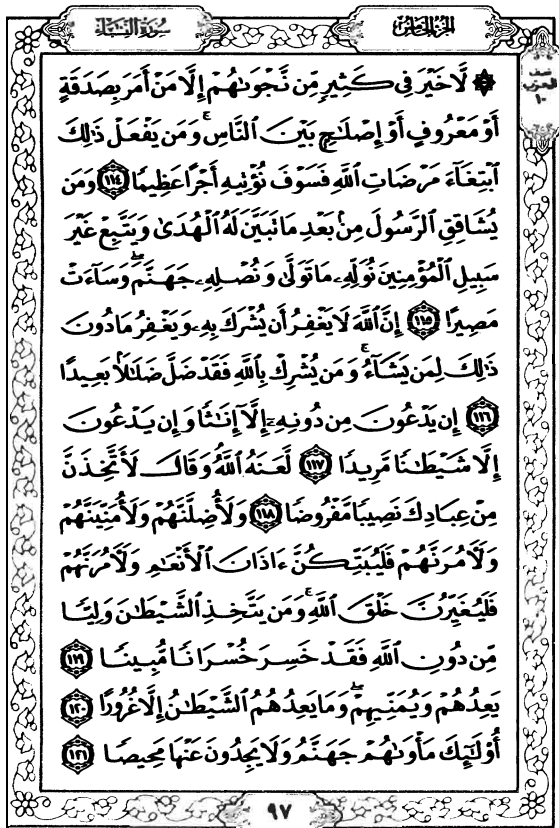 سُورَةُ النِّسَاءِ
الجُزْءُ الخَامِسُ
نصف
الحزب
١٠
۞ لَّا خَيْرَ فِي كَثِيرٍ مِّن نَّجْوَىٰهُمْ إِلَّا مَنْ أَمَرَ بِصَدَقَةٍ
أَوْ مَعْرُوفٍ أَوْ إِصْلَٰحٍ بَيْنَ النَّاسِ ۚ وَمَن يَفْعَلْ ذَٰلِكَ
ابْتِغَآءَ مَرْضَاتِ اللَّهِ فَسَوْفَ نُؤْتِيهِ أَجْرًا عَظِيمًا ﴿١١٤﴾ وَمَن
يُشَاقِقِ الرَّسُولَ مِنۢ بَعْدِ مَا تَبَيَّنَ لَهُ الْهُدَىٰ وَيَتَّبِعْ غَيْرَ
سَبِيلِ الْمُؤْمِنِينَ نُوَلِّهِۦ مَا تَوَلَّىٰ وَنُصْلِهِۦ جَهَنَّمَ ۖ وَسَآءَتْ
مَصِيرًا ﴿١١٥﴾ إِنَّ اللَّهَ لَا يَغْفِرُ أَن يُشْرَكَ بِهِۦ وَيَغْفِرُ مَا دُونَ
ذَٰلِكَ لِمَن يَشَآءُ ۚ وَمَن يُشْرِكْ بِاللَّهِ فَقَدْ ضَلَّ ضَلَٰلًۢا بَعِيدًا
﴿١١٦﴾ إِن يَدْعُونَ مِن دُونِهِۦٓ إِلَّآ إِنَٰثًا وَإِن يَدْعُونَ
إِلَّا شَيْطَٰنًا مَّرِيدًا ﴿١١٧﴾ لَّعَنَهُ اللَّهُ وَقَالَ لَأَتَّخِذَنَّ
مِنْ عِبَادِكَ نَصِيبًا مَّفْرُوضًا ﴿١١٨﴾ وَلَأُضِلَّنَّهُمْ وَلَأُمَنِّيَنَّهُمْ
وَلَءَامُرَنَّهُمْ فَلَيُبَتِّكُنَّ ءَاذَانَ الْأَنْعَٰمِ وَلَءَامُرَنَّهُمْ
فَلَيُغَيِّرُنَّ خَلْقَ اللَّهِ ۚ وَمَن يَتَّخِذِ الشَّيْطَٰنَ وَلِيًّا
مِّن دُونِ اللَّهِ فَقَدْ خَسِرَ خُسْرَانًا مُّبِينًا ﴿١١٩﴾
يَعِدُهُمْ وَيُمَنِّيهِمْ ۖ وَمَا يَعِدُهُمُ الشَّيْطَٰنُ إِلَّا غُرُورًا ﴿١٢٠﴾
أُو۟لَٰٓئِكَ مَأْوَىٰهُمْ جَهَنَّمُ وَلَا يَجِدُونَ عَنْهَا مَحِيصًا ﴿١٢١﴾
٩٧